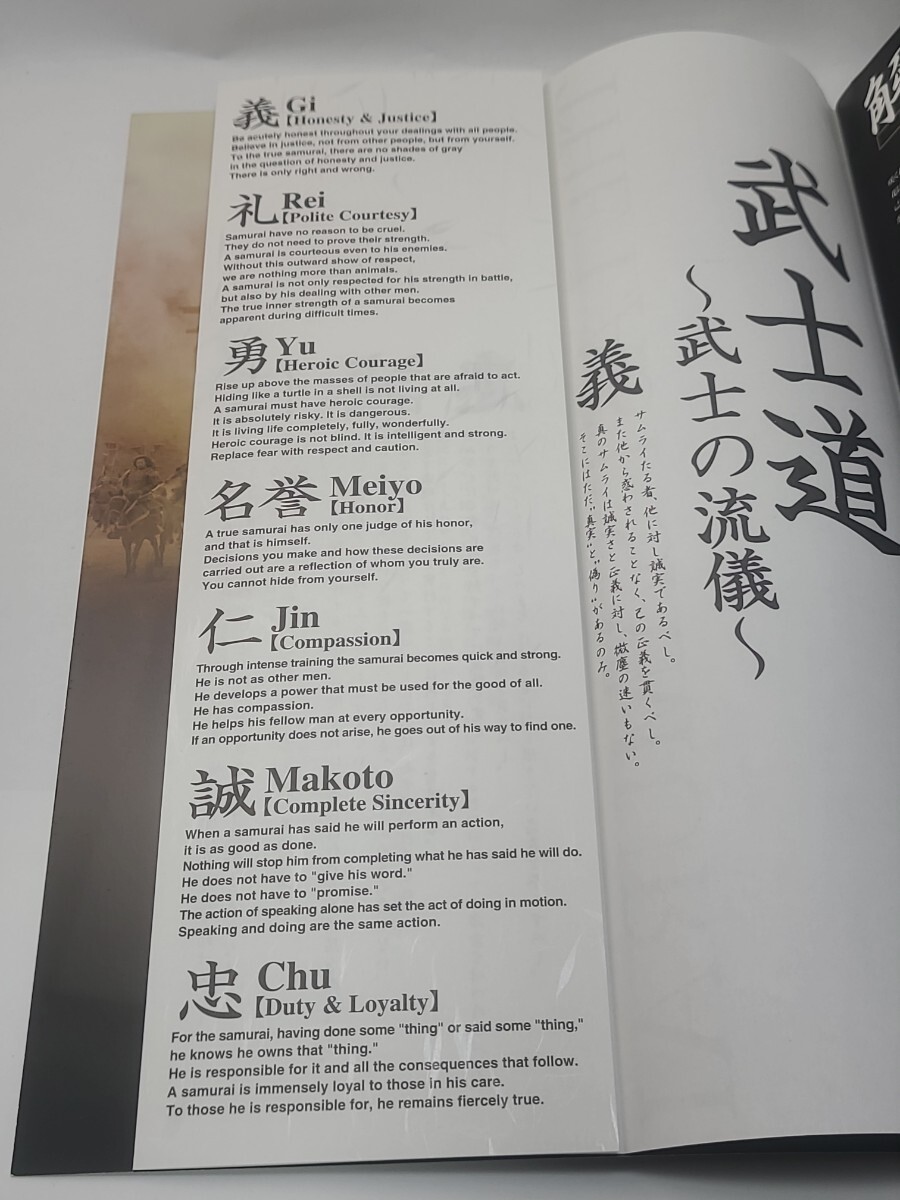 義 Gi
【Honesty & Justice】
Be acutely honest throughout your dealings with all people.
Believe in justice, not from other people, but from yourself.
To the true samurai, there are no shades of gray
in the question of honesty and justice.
There is only right and wrong.
礼 Rei
【Polite Courtesy】
Samurai have no reason to be cruel.
They do not need to prove their strength.
A samurai is courteous even to his enemies.
Without this outward show of respect,
we are nothing more than animals.
A samurai is not only respected for his strength in battle,
but also by his dealing with other men.
The true inner strength of a samurai becomes
apparent during difficult times.
勇 Yu
【Heroic Courage】
Rise up above the masses of people that are afraid to act.
Hiding like a turtle in a shell is not living at all.
A samurai must have heroic courage.
It is absolutely risky. It is dangerous.
It is living life completely, fully, wonderfully.
Heroic courage is not blind. It is intelligent and strong.
Replace fear with respect and caution.
名誉 Meiyo
【Honor】
A true samurai has only one judge of his honor,
and that is himself.
Decisions you make and how these decisions are
carried out are a reflection of whom you truly are.
You cannot hide from yourself.
仁 Jin
【Compassion】
Through intense training the samurai becomes quick and strong.
He is not as other men.
He develops a power that must be used for the good of all.
He has compassion.
He helps his fellow man at every opportunity.
If an opportunity does not arise, he goes out of his way to find one.
誠 Makoto
【Complete Sincerity】
When a samurai has said he will perform an action,
it is as good as done.
Nothing will stop him from completing what he has said he will do.
He does not have to "give his word."
He does not have to "promise."
The action of speaking alone has set the act of doing in motion.
Speaking and doing are the same action.
忠 Chu
【Duty & Loyalty】
For the samurai, having done some "thing" or said some "thing,"
he knows he owns that "thing."
He is responsible for it and all the consequences that follow.
A samurai is immensely loyal to those in his care.
To those he is responsible for, he remains fiercely true.
武士道
〜武士の流儀〜
義
サムライたる者、他に対し誠実であるべし。
また他から惑わされることなく、己の正義を貫くべし。
真のサムライは誠実さと正義に対し、微塵の迷いもない。
そこにはただ"真実"と"偽り"があるのみ。